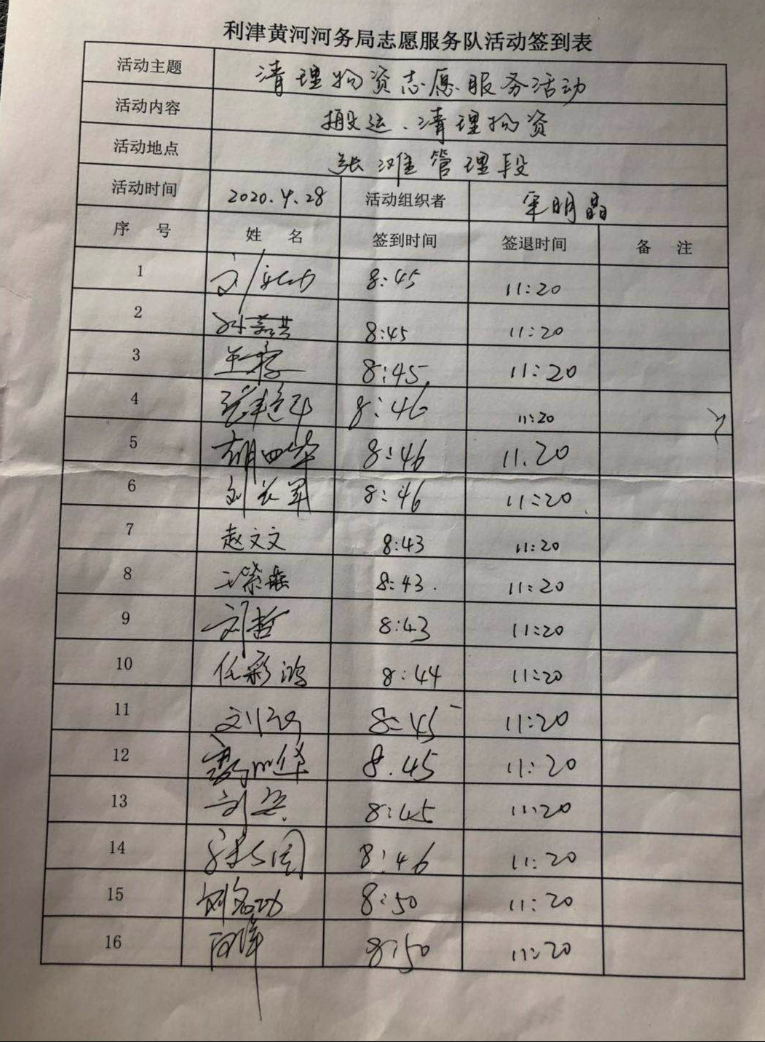 利津黄河河务局志愿服务队活动签到表
活动主题 清理物资志愿服务活动
活动内容 搬运、清理物资
活动地点 张滩管理段
活动时间 2020.4.28 活动组织者 明晶
序 号 姓 名 签到时间 签退时间 备 注
1 刘 8:45 11:20
2 孙 8:45 11:20
3 8:45 11:20
4 8:46 11:20
5 胡四华 8:46 11.20
6 刘长军 8:46 11:20
7 赵文文 8:43 11:20
8 8:43. 11:20
9 刘哲 8:43 11:20
10 任彩鸿 8:44 11:20
11 刘 8:45 11:20
12 8.45 11:20
13 刘 8:45 11:20
14 8:46 11:20
15 8:50 11:20
16 8:50 11:20